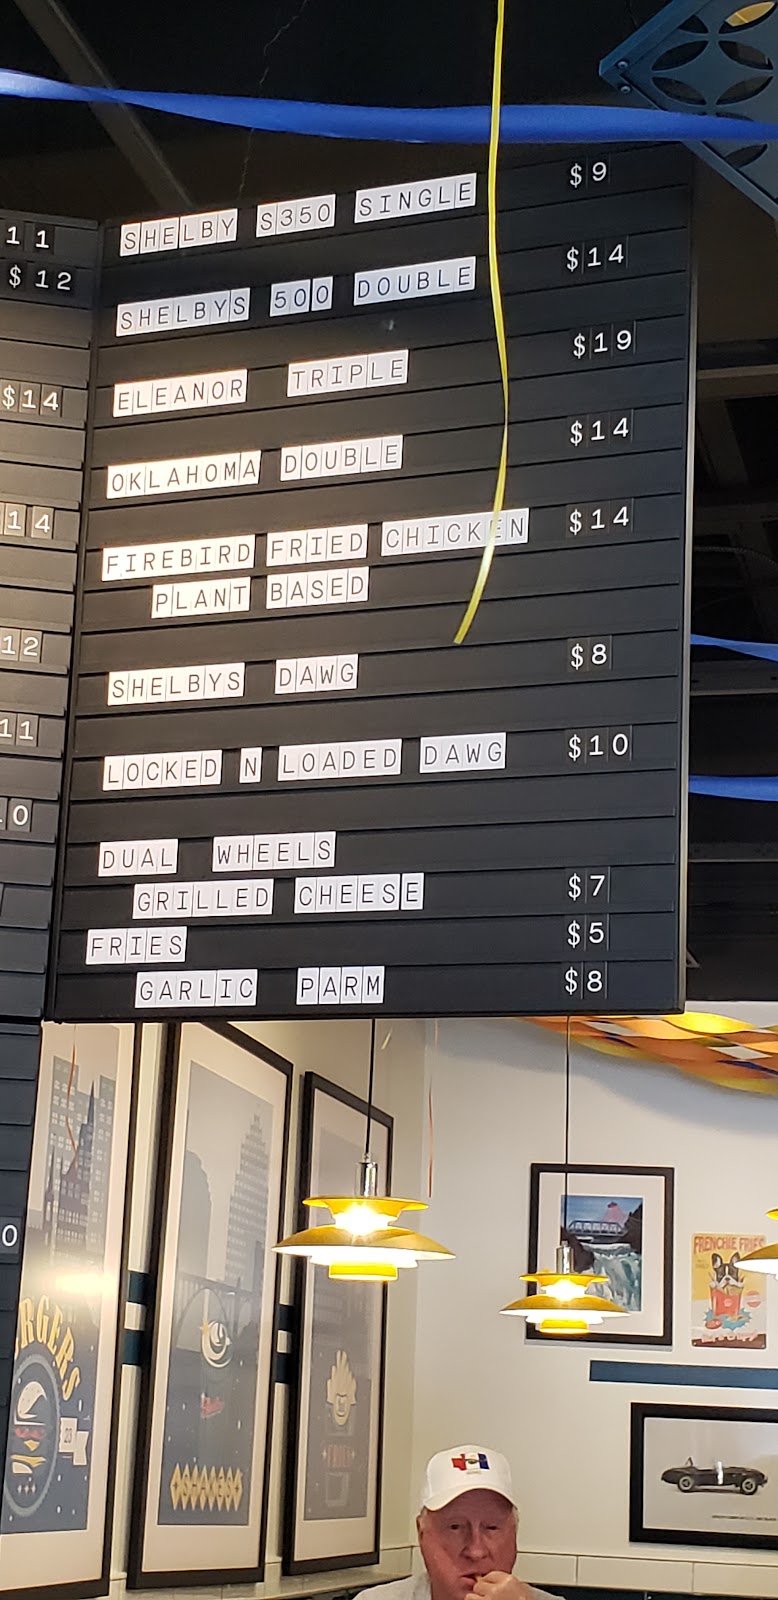 11
$12
$14
14
12
11
0
0
SHELBY S350 SINGLE $9
SHELBYS 500 DOUBLE $14
ELEANOR TRIPLE $19
OKLAHOMA DOUBLE $14
FIREBIRD FRIED CHICKEN $14
PLANT BASED
SHELBYS DAWG $8
LOCKED N LOADED DAWG $10
DUAL WHEELS
GRILLED CHEESE $7
FRIES $5
GARLIC PARM $8
RGERS
23
SHAKES
FRIES
FRENCHIE FRIES